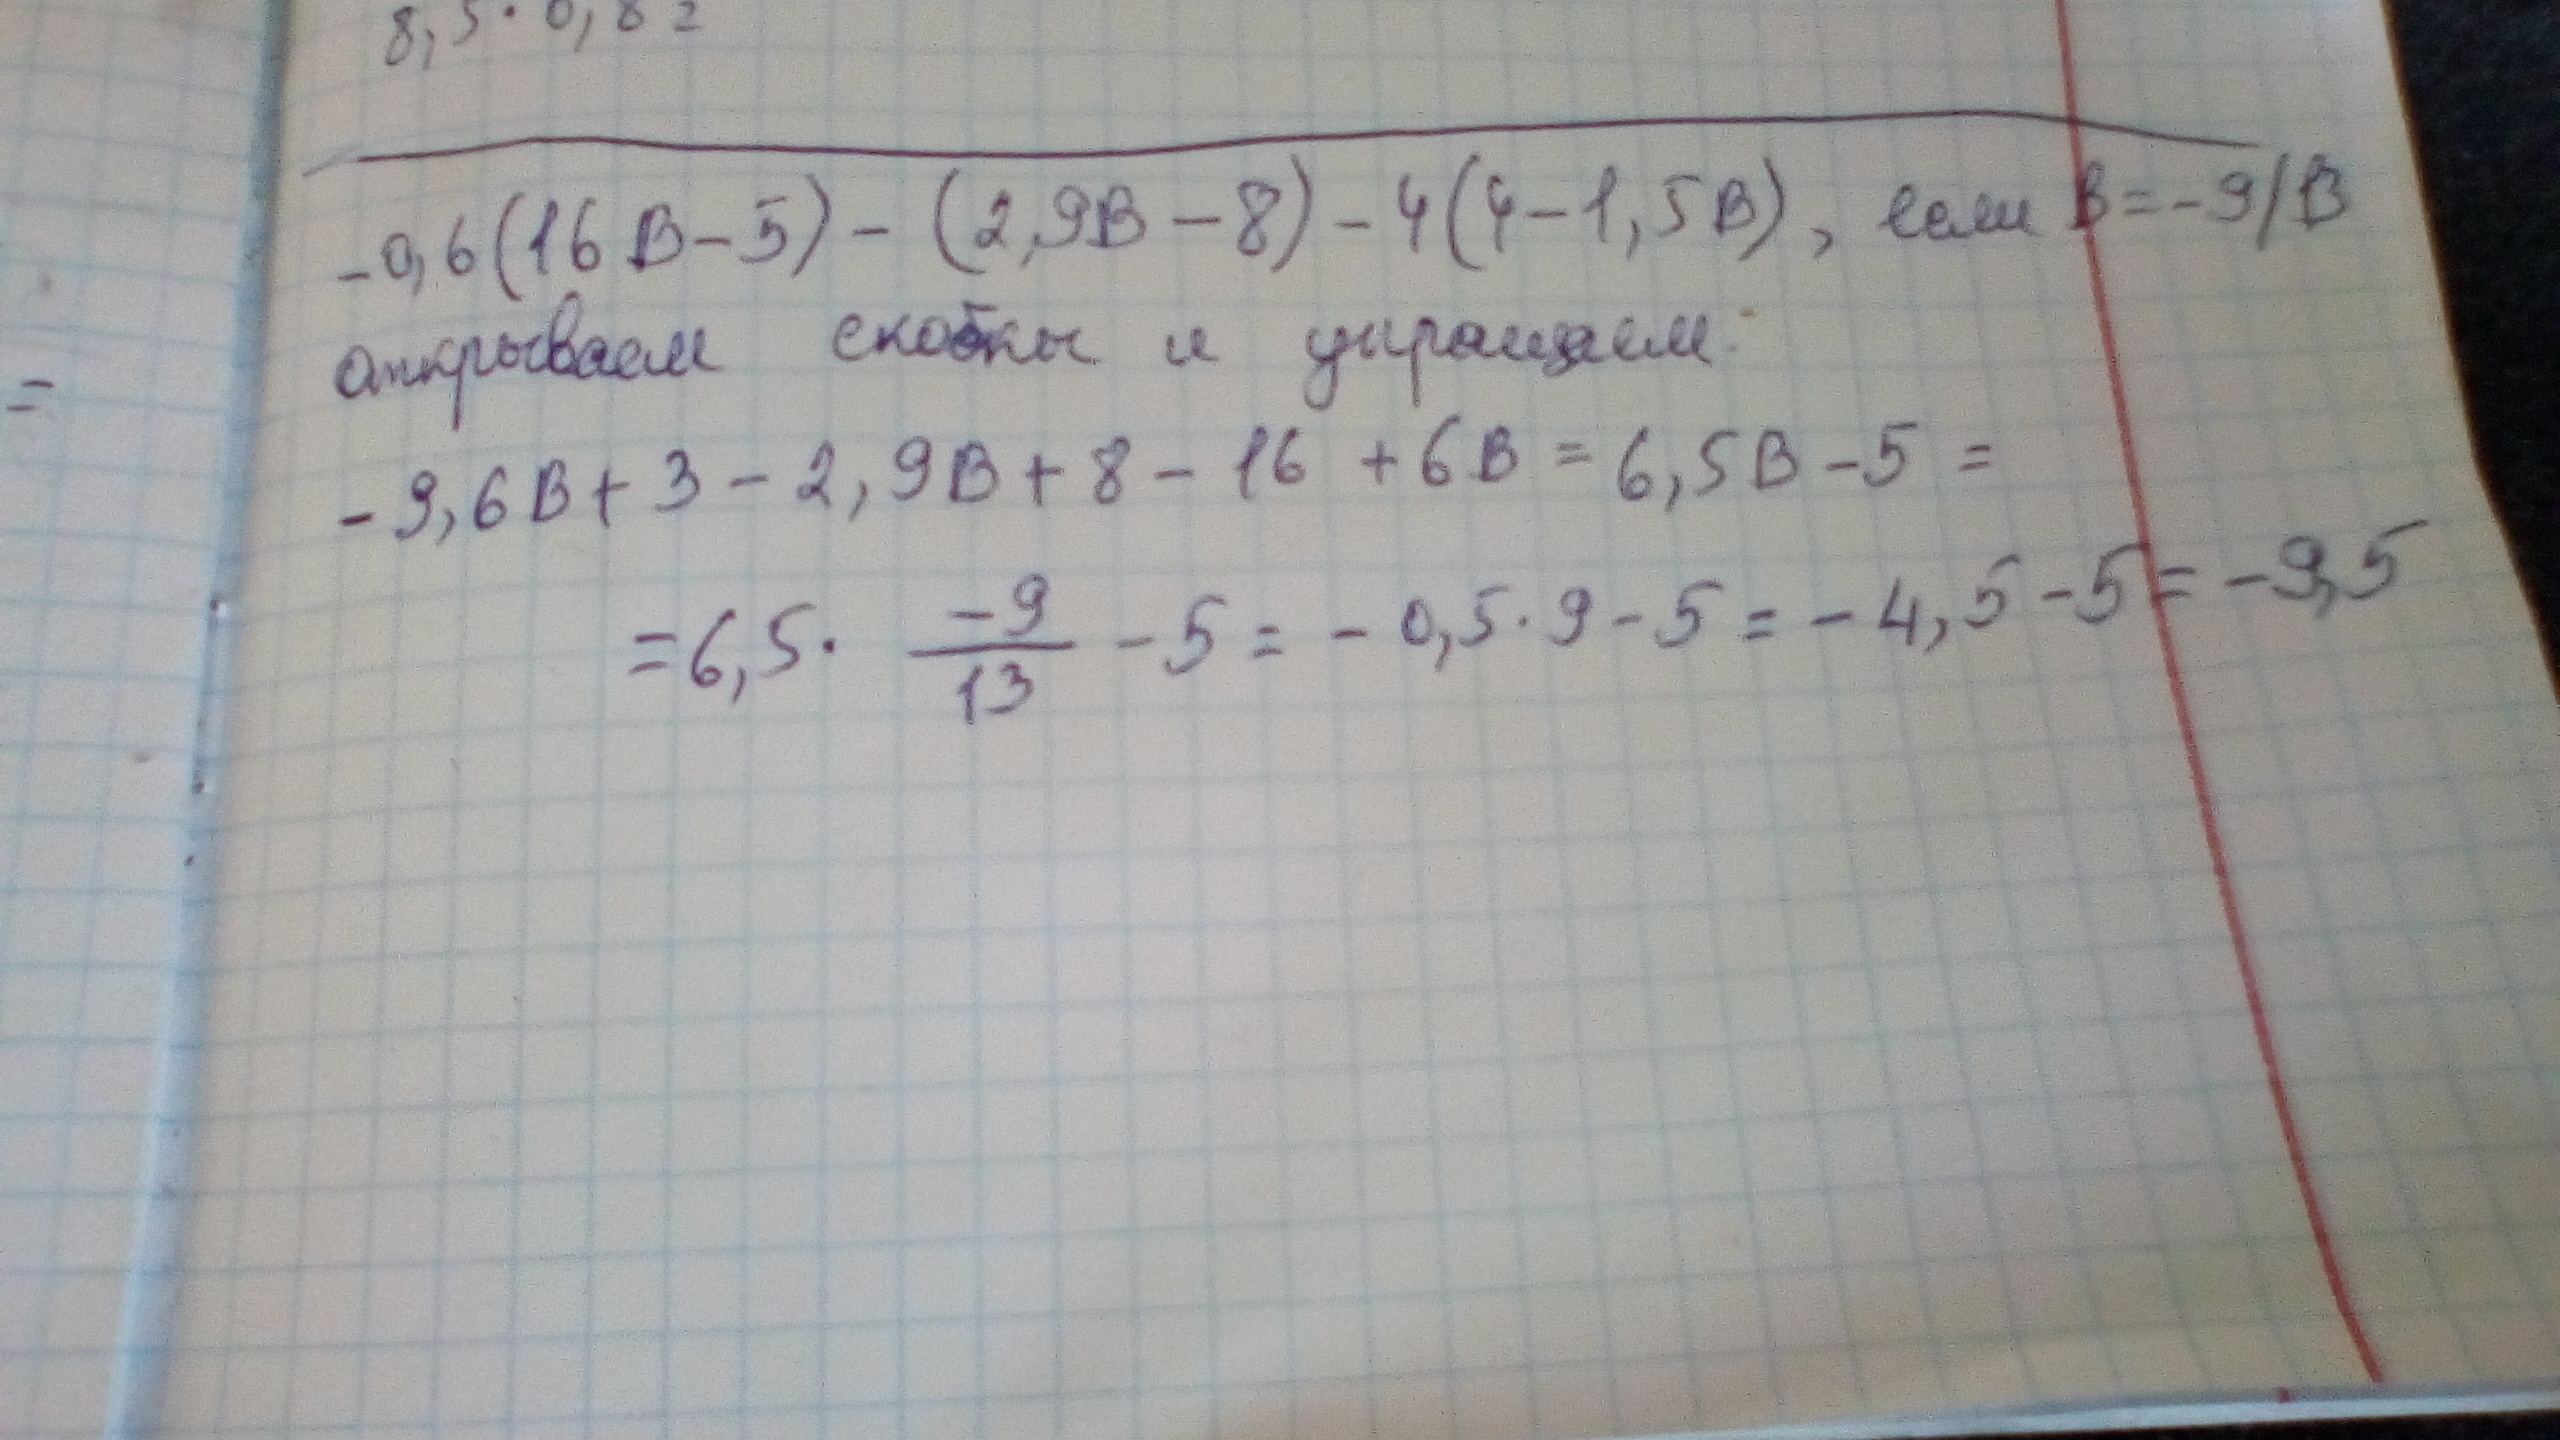 8,5·0,8=
-0,6(16В-5)-(2,9В-8)-4(4-1,5В), если В=-9/13
открываем скобки и упращаем:
-9,6В+3-2,9В+8-16+6В=6,5В-5=
=6,5·\frac{-9}{13}-5=-0,5·9-5=-4,5-5=-9,5
=